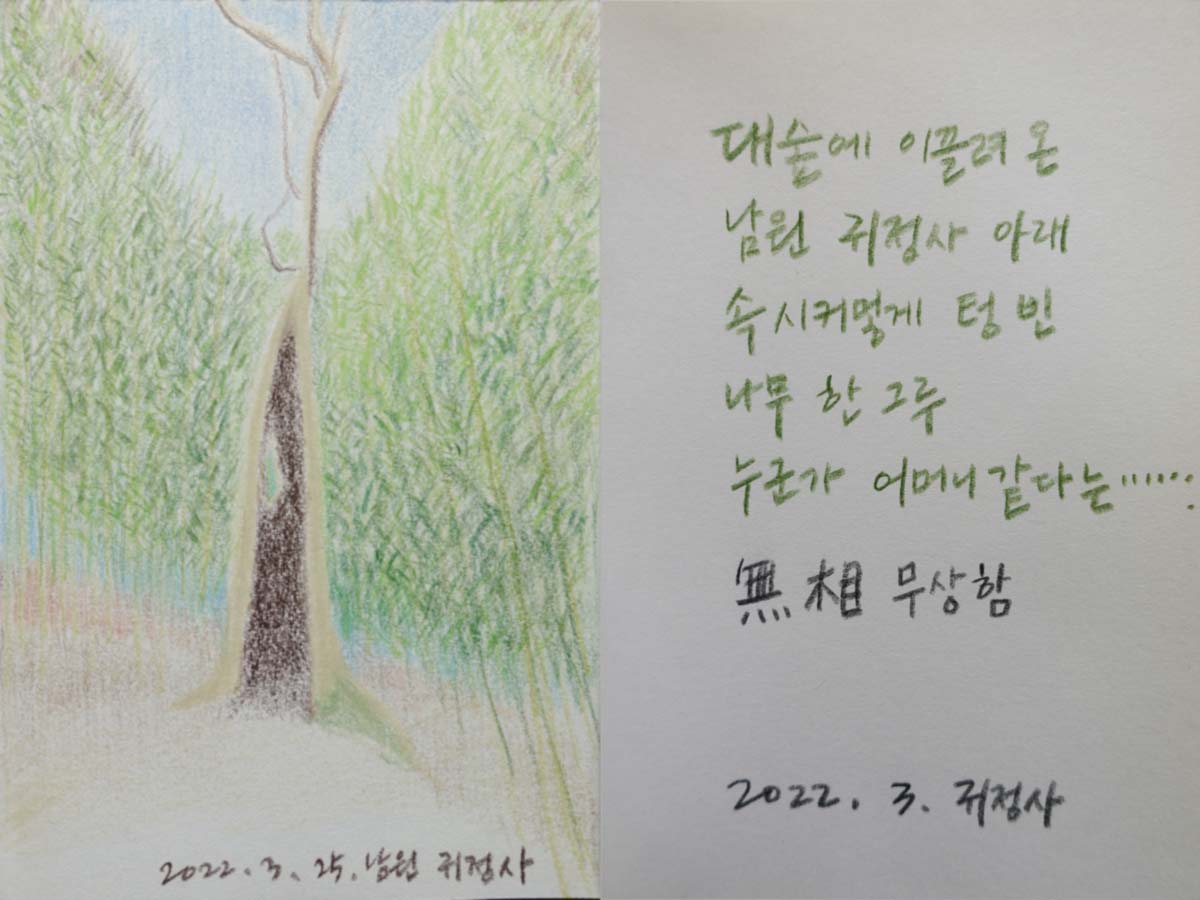 2022.3.25. 남원 귀정사
대숲에 이끌려 온
남원 귀정사 아래
속 시커멓게 텅 빈
나무 한 그루
누군가 어머니 같다는‥‥‥.
無相 무상함
2022. 3. 귀정사